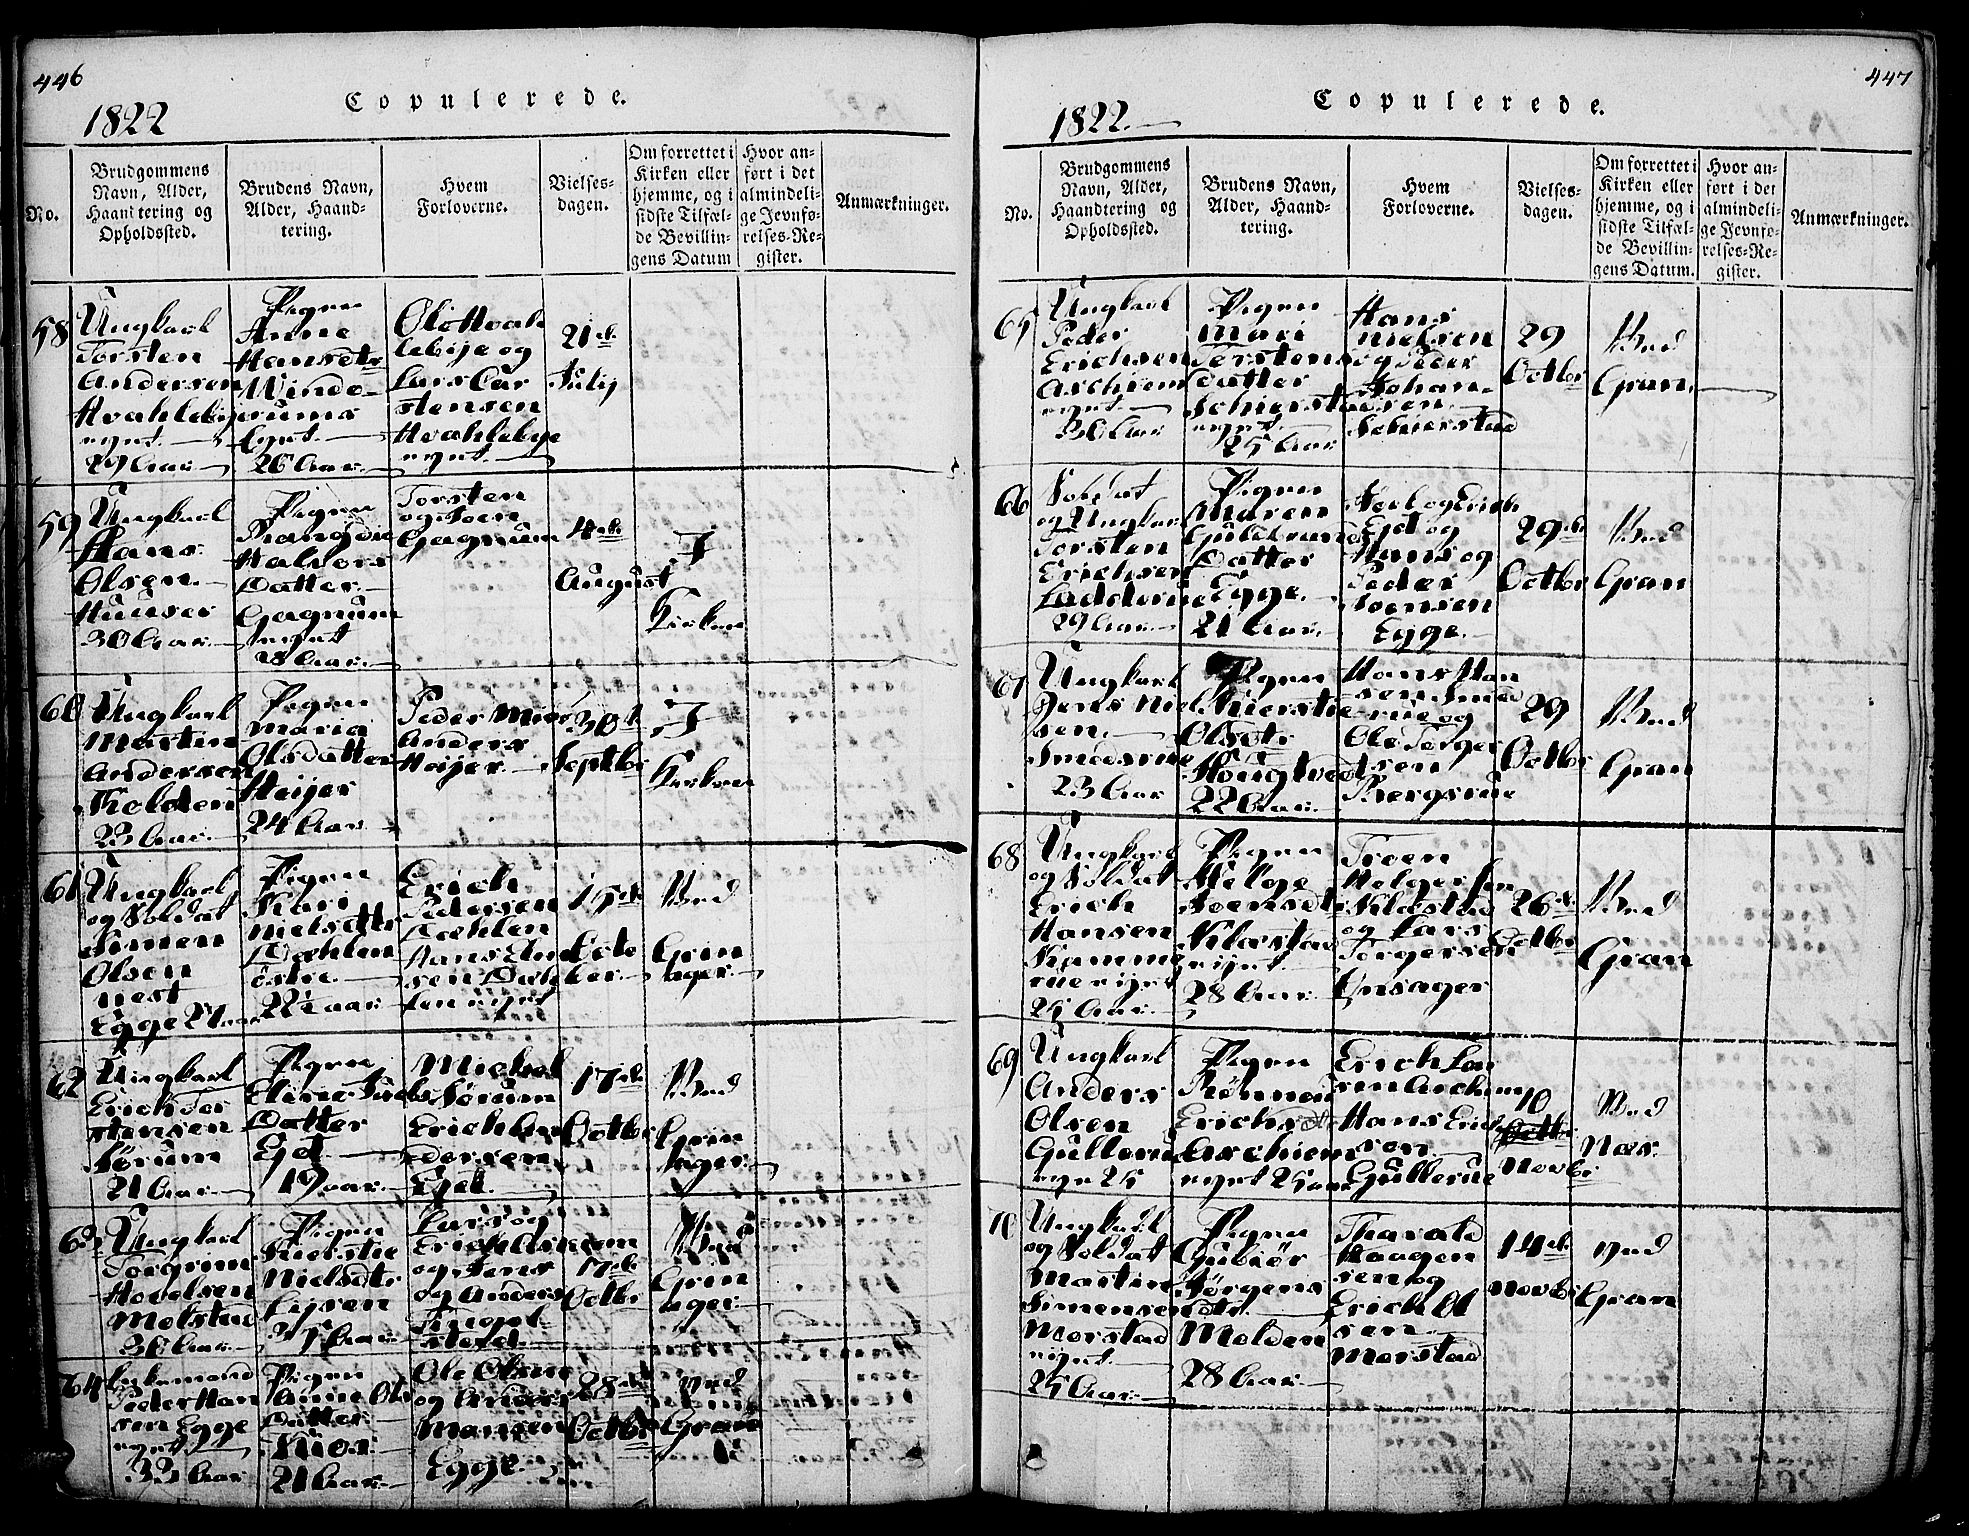 446
1822
Copulerede.
No.
Brudgommens
Navn, Alder,
Haandtering og
Opholdssted.
Brudens Navn,
Alder, Haand-
tering.
Hvem
Forloverne.
Vielses-
dagen.
Om forrettet i
Kirken eller
hjemme, og i
sidste Tilfæl-
de Bevillin-
gens Datum
Hvor an-
ført i det
almindeli-
ge Jevnfø-
relses-Re-
gister.
Anmærkninger.
58
Ungkarl
Torsten
Andersen
Hvahlebye
eynt.
29 Aar.
Pigen
Anne
Hansdtr
Windo-
rums
Eynt.
26 Aar.
Ole Hvah
lebije og
Lars Car
stensen
Hvahlebye
eynt.
21de
Julij
59
Ungkarl
Hans
Olsen
30 Aar.
Pigen
Rangdie
Halvors
Datter
Gagnum
eynt
28 Aar.
Torsten
og Joen
Gagnum
4de
August
I
Kirken
60
Ungkarl
Marten
Andersen
23 Aar.
Pigen
Maria
Olsdatter
Heijer
24 Aar
Peder
Anders
Heijer
30t
Septbr
I
Kirken
61
Ungkarl
og Soldat
Simen
Olsen
nest
Egge 27 aar
Pigen
Kari
Nielsdtr
Dæhlen
östre
22 aar
Erich
Pedersen
Dæhlen
Hans
15de
Octo
ber.
Ved
Grin
ager
62
Ungkarl
Erich Tor
stensen
Sørum
21 Aar.
Pigen
Datter
Ejet
19 aar.
Michel
Sørum
Erich An
dersen
Ejet.
17de
Octbr
Ved
Grin
ager
63
Ungkarl
Torgrim
Molstad
36 Aar.
Pigen
Kierstie
Nielsdtr
35 Aar.
Lars og
og Jens
og Anders
17de
Octbr
Ved
Grin
ager
64
Peder Han
sen Egge
eynt
33 Aar
Pigen
Anne Ols
Datter
21 Aar.
Ole Olsen
og
Hansen
Egge
28de
Octbr
ved
Gran
447
1822.
Copulerede.
No.
Brudgommens
Navn, Alder,
Haandtering og
Opholdssted.
Brudens Navn,
Alder, Haand-
tering.
Hvem
Forloverne.
Vielses-
dagen.
Om forrettet i
Kirken eller
hjemme, og i
sidste Tilfæl-
de Bevillin-
gens Datum.
Hvor an-
ført i det
almindeli-
ge Jevnfø-
relses-Re-
gister.
Anmærkninger.
65
Ungkarl
Peder
Erichsen
Aschiem
eynt.
30 Aar.
Pigen
Mari
Torstens
datter
Schiersta
eynt.
25 Aar
Hans
Nielsen
og Peder
Johan-
sen
Schierstad
29
Octbr
Ved
Gran.
66
Soldat
og Ungkarl
Torsten
Erichsen
29 Aar.
Pigen
Maren
Gulbrands
Datter
Egge.
21 Aar.
Ejet og
Hans og
Peder
Joensen
Egge.
29de
Octbr
Ved
Gran
67
Ungkarl
Jens Niel
sen.
Smedsrue
23 Aar
Pigen
Kierstie
Olsdtr
Hougtvedt
22 Aar.
Hans Han
sen Smed
rue og
Ole Torger
sen
Bergsrue
29
Octbr
Ved
Gran
68
Ungkarl
og Soldat
Erich
Hansen
Ramme
rue eijet
25 Aar.
Pigen
Helge
Joensdtr
Klæstad
eijet
28 Aar.
Troen
Helgersen
Klæstad
og Lars
Torgersen
Onsager
26de
Octbr
Ved
Gran
69
Ungkarl
Anders
Olsen
Gullerud
eyn 25
Pigen
Rønnou
Erichsdtr
Aschiem
eynt 25 aar
Erich Lar
sen Aschiem
Hans Erich
sen
Gullerue
10
Octbr
Novbr
Ved
Næs.
70
Ungkarl
og Soldat
Martin
Simensen
Morstad
eijnt.
25 Aar.
Pigen
Gubiör
Jörgens
dtr.
Molden
28 Aar.
Tharald
Haagen
sen og
Erich Ol
sen
Morstad
14de
Novbr
ved
Gran